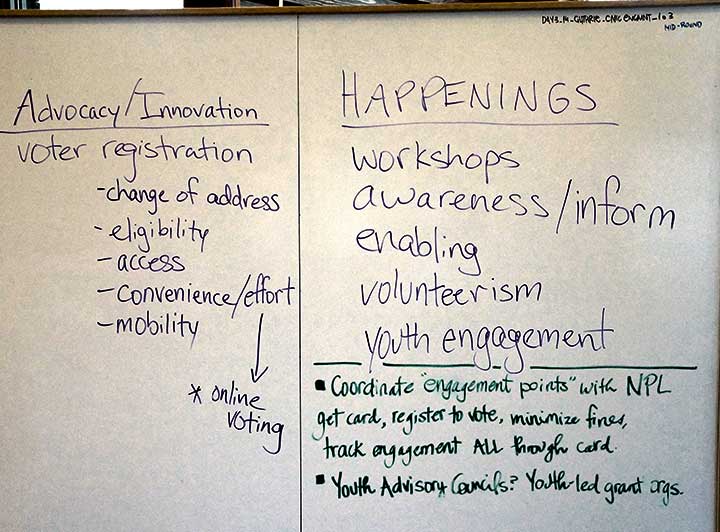 DAY3_M_GUTHRIE_CIVIC ENGMNT_1 of 3
MID-ROUND
Advocacy/Innovation
voter registration
-change of address
-eligibility
-access
-convenience/effort
-mobility
* online
voting
HAPPENINGS
workshops
awareness/inform
enabling
volunteerism
youth engagement
▪ Coordinate "engagement points" with NPL
get card, register to vote, minimize fines,
track engagement ALL through card.
▪ Youth Advisory Councils? Youth-led grant orgs.